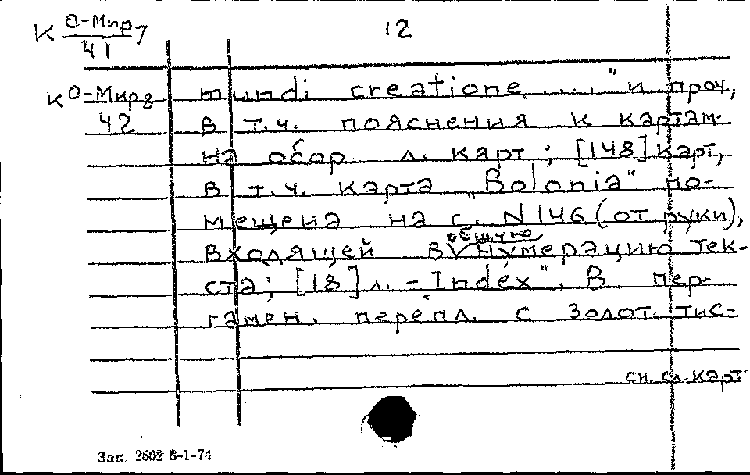 К О-Мир 7
41
12
К О-Мир 8
42
mundi creatione ..." и проч.,
в т.ч. пояснения к картам
на обор. л. карт; [148] карт,
в т.ч. карта „Bolonia" по-
мещена на с. N 146 (от руки),
общую
входящей в V нумерацию тек-
ста; [18] л. - Index". В пер-
гамен. перепл. с золот. тис-
сн. сл. карт
Зак. 2602 6-1-74